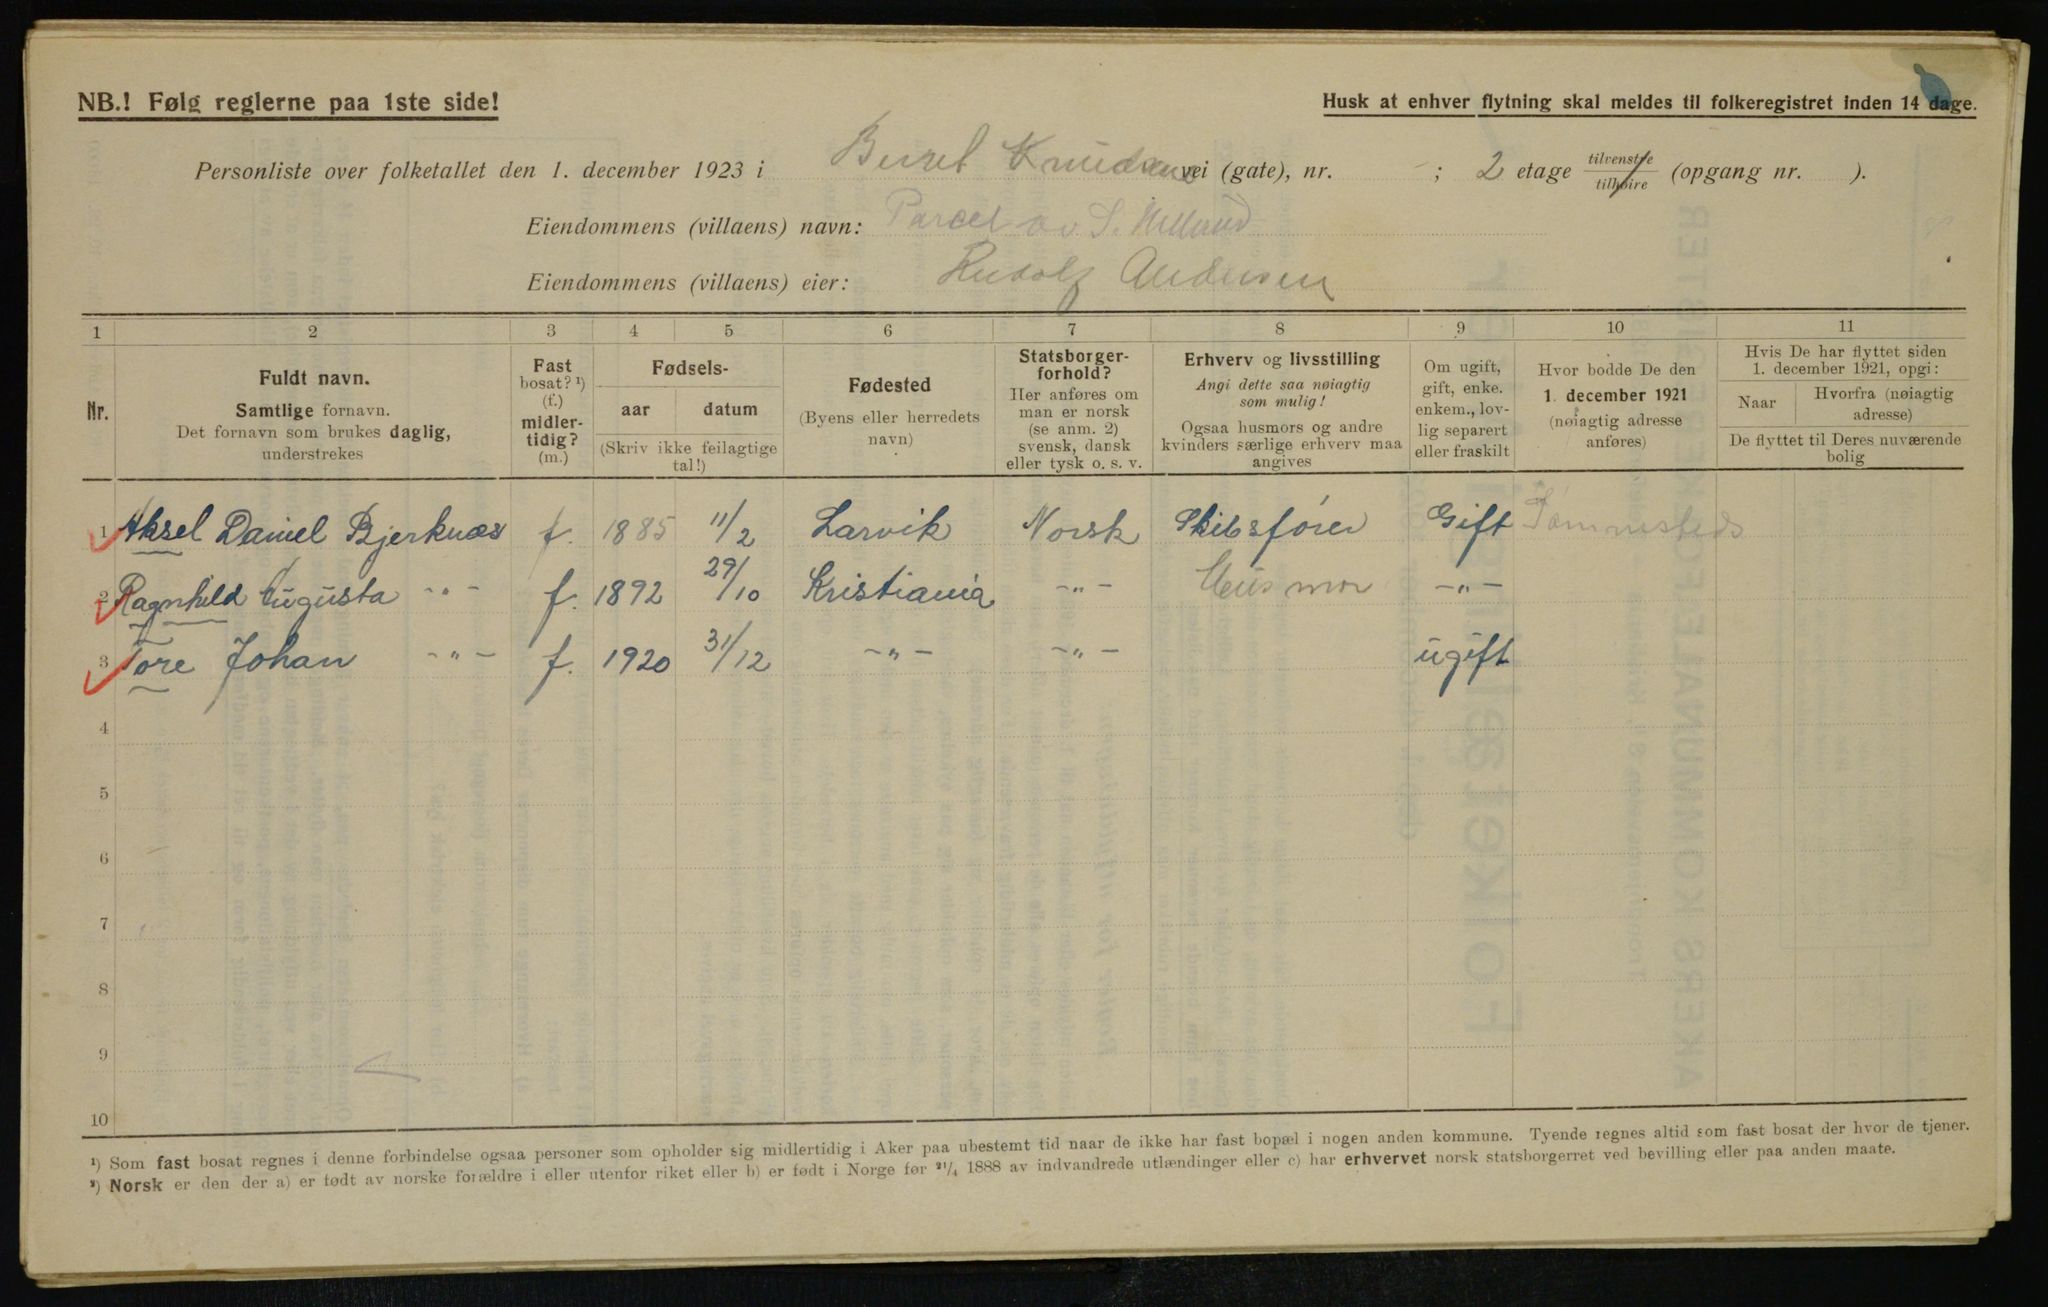 NB.! Følg reglerne paa 1ste side!
Husk at enhver flytning skal meldes til folkeregistret inden 14 dage.
Personliste over folketallet den 1. december 1923 i Knudsens vei (gate), nr. ; 2 etage tilvenstre / tilhøire (opgang nr. ).
Eiendommens (villaens) navn: Parcel av S.
Eiendommens (villaens) eier: Rudolf Andersen
1 2 3 4 5 6 7 8 9 10 11
Nr.
Fuldt navn.
Samtlige fornavn.
Det fornavn som brukes daglig,
understrekes
Fast
bosat? ¹)
(f.)
midler-
tidig?
(m.)
Fødsels-
aar datum
(Skriv ikke feilagtige
tal!)
Fødested
(Byens eller herredets
navn)
Statsborger-
forhold?
Her anføres om
man er norsk
(se anm. 2)
svensk, dansk
eller tysk o. s. v.
Erhverv og livsstilling
Angi dette saa nøiagtig
som mulig!
Ogsaa husmors og andre
kvinders særlige erhverv maa
angives
Om ugift,
gift, enke.
enkem., lov-
lig separert
eller fraskilt
Hvor bodde De den
1. december 1921
(nøiagtig adresse
anføres)
Hvis De har flyttet siden
1. december 1921, opgi:
Naar
Hvorfra (nøiagtig
adresse)
De flyttet til Deres nuværende
bolig
1 Aksel Daniel Bjerknæs f. 1885 11/2 Larvik Norsk Skibsfører Gift
2 Ragnhild Augusta -„- f. 1892 29/10 Kristiania -„- Husmor -„-
3 Tore Johan -„- f. 1920 31/12 -„- -„- ugift
4
5
6
7
8
9
10
¹) Som fast bosat regnes i denne forbindelse ogsaa personer som opholder sig midlertidig i Aker paa ubestemt tid naar de ikke har fast bopæl i nogen anden kommune. Tyende regnes altid som fast bosat der hvor de tjener.
²) Norsk er den der a) er født av norske forældre i eller utenfor riket eller b) er født i Norge før ²¹/₄ 1888 av indvandrede utlændinger eller c) har erhvervet norsk statsborgerret ved bevilling eller paa anden maate.